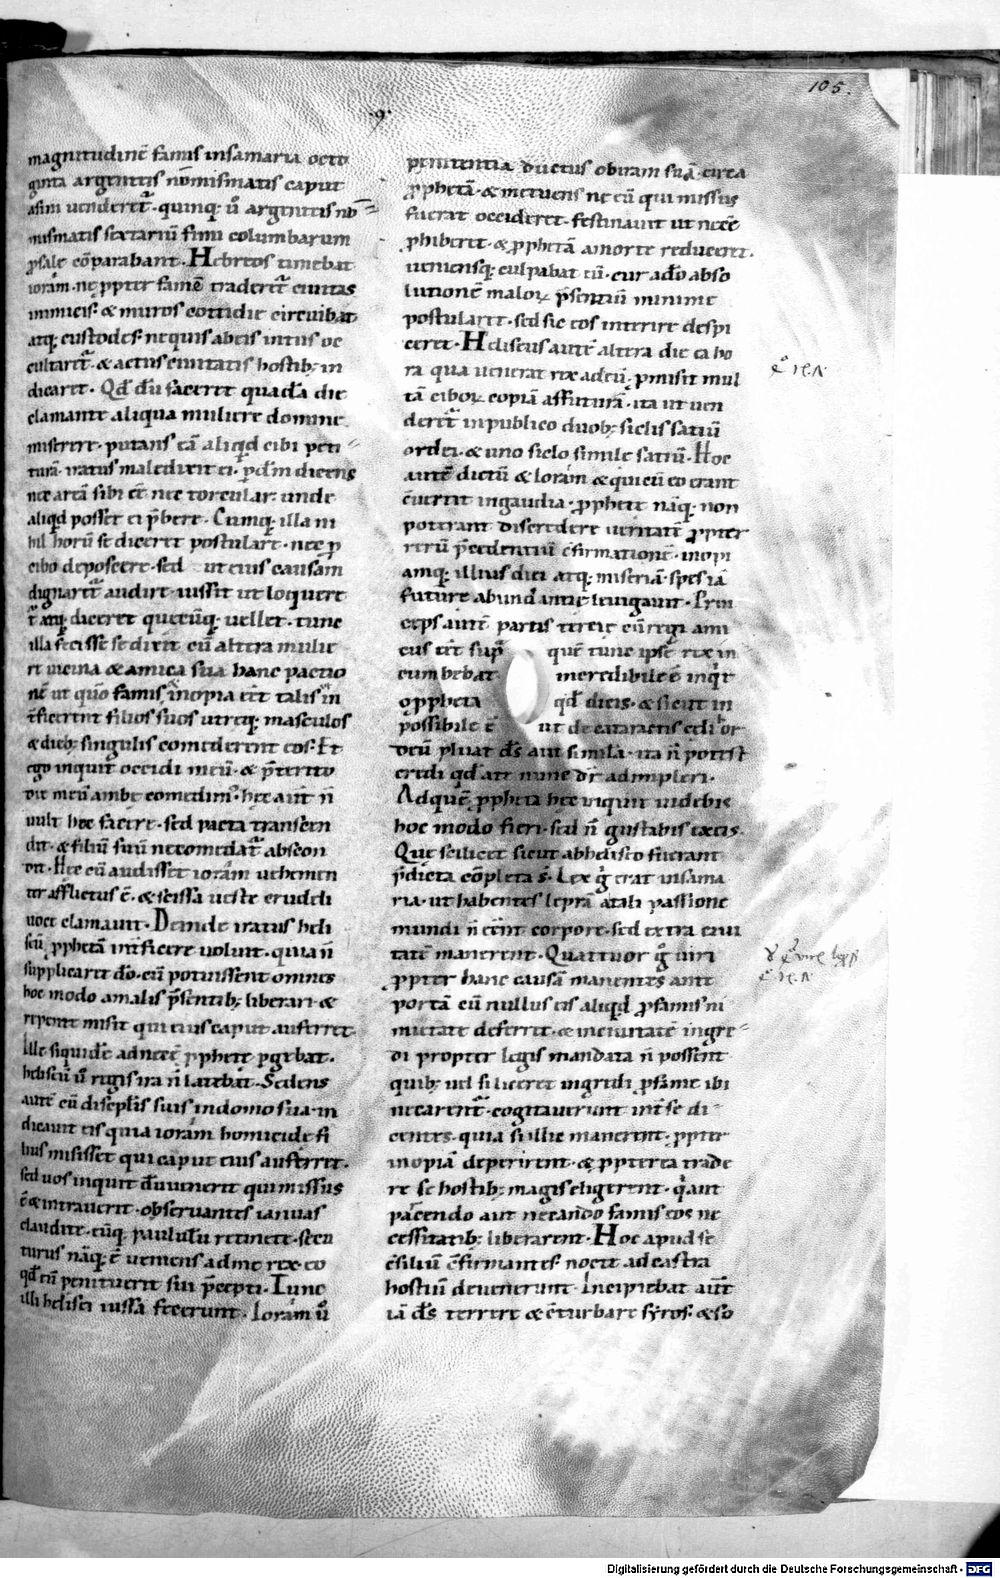 105.
·9·
magnitudinē famis insamaria octo
ginta argenteis nōmismatis caput
asini venderet᷑· quinq; ů argenteis nō
mismatis sextariū fimi columbarum
ꝓsale cōparabant· Hebreos timebat
iorám· ne ꝓpter famē traderet᷑ ciuitas
inimicis· & muros cottidie circuibat
atq; custodes· nequis abeis intus oc
cultaret᷑· & actus ciuitatis hostib; in
dicaret· Qđ dū faceret quadā die
clamante aliqua muliere domine
miserere· putans eā aliqđ cibi peti
turā· iratus maledixit ei· ꝑ dm̄ dicens
nec areā sibi eē nec torcular· unde
aliqđ posset ei p̄bere· Cumq; illa ni
hil horū se diceret postulare· nec ꝓ
cibo deposcere· sed ut eius causam
dignaret᷑ audire· iussit ut loquere
t᷑ atq; diceret quecūq; uellet· tunc
illa fecisse se dixit cū altera mulie
re uicina & amica sua hanc pactio
nē ut quō famis inopia eēt talis in
t̄ficerent filios suos utreq; masculos
& dieb; singulis comederent eos· Et
ego inquit occidi meū· & p̄terito
die meū ambe comedim᷒· hec aūt n̄
uult hoc facere· sed pacta transcen
dit· & filiū suū necomedat᷑ abscon
dit· Hec cū audisset iorám uehemen
ter afflictus ē· & scissa ueste crudeli
uoce clamauit· Deinde iratus heli
seū ꝓphetā int̄ficere uoluit· quia n̄
supplicaret dō· cū potuissent omnes
hoc modo amalis p̄sentib; liberari· &
repente misit qui eius caput auferret·
Ille siquidē adnecē ꝓphete ꝑgebat·
heliseū ů regis ira n̄ latebat· Sedens
autē cū discipl̄is suis indomo sua· in
dicauit eis quia iorám homicide fi
lius misisset qui caput eius auferret·
sed uos inquit dū uenerit qui missus
ē & intrauerit· obseruantes ianuas
claudite· eūq; paululū retinete· secu
turus nāq; ē ueniens adme rex· eo
qđ eū penituerit sui p̄cepti· Tunc
illi helisei iussa fecerunt· Iorám ů
penitentia ductus obiram suā circa
ꝓphetā· & metuens ne eū qui missus
fuerat occideret· festinauit ut necē
ꝓhiberet· & ꝓphetā amorte reduceret·
ueniensq; culpabat eū· cur adō abso
lutionē maloꝝ p̄sentiū minime
postularet· sed sic eos interire despi
ceret· Heliseus autē altera die ea ho
ra qua uenerat rex adeū; ꝓmisit mul
tā ciboꝝ copiā affuturā· ita ut uen
deret᷑ in publico duob; siclis satū
ordei· & uno siclo simile satū· Hoc
autē dictū & iorám & qui cū eo erant
c̄uertit ingaudia· ꝓphete nāq; non
poterant discredere ueritatē ꝓpter
rerū p̄cedentiū c̄firmationē· inopi
amq; illius diei atq; miseriā· spes iā
future abundantie leuigauit· Prin
ceps autē partis tercię cū regi ami
cus eēt sup̄ quē tunc ipse rex in
cumbebat incredibile ē inqͥt
o ꝓpheta qđ dicis· & sicut in
possibile ē ut de cataractis celi or
deū pluat ds̄ aut simila· ita n̄ potest
credi qđ ate nunc dr̄ adimpleri·
Adquē ꝓpheta hec inquit uidebis
hoc modo fieri· sed n̄ gustabis exeis·
Que scilicet sicut abheliseo fuerant
p̄dicta cōpleta s̄· Lex g̊ erat insama
ria· ut habentesleprā atali passione
mundi n̄ eēnt corpore· sed extra ciui
tatē manerent· Quattuor g̊ uiri
ꝓpter hanc causā manentes ante
portā cū nullus eis aliqđ ꝓ famis ni
mietate deferret· & inciuitatē ingre
di propter legis mandata n̄ possent
quib; uel si liceret ingredi ꝓ fame ibi
necarent᷑· cogitauerunt int̄se di
centes· quia si illic manerent· ꝓpter
inopiā deperirent· & ꝓpterea trade
re se hostib; magis eligerent· qͥ aut
parcendo aut necando famis eos ne
cessitatib; liberarent· Hoc apud se
c̄siliū c̄firmantes· nocte adcastra
hostiū deuenerunt· Incipiebat aūt
iā ds̄ terrere & c̄turbare syros· & so
Digitalisierung gefördert durch die Deutsche Forschungsgemeinschaft - DFG